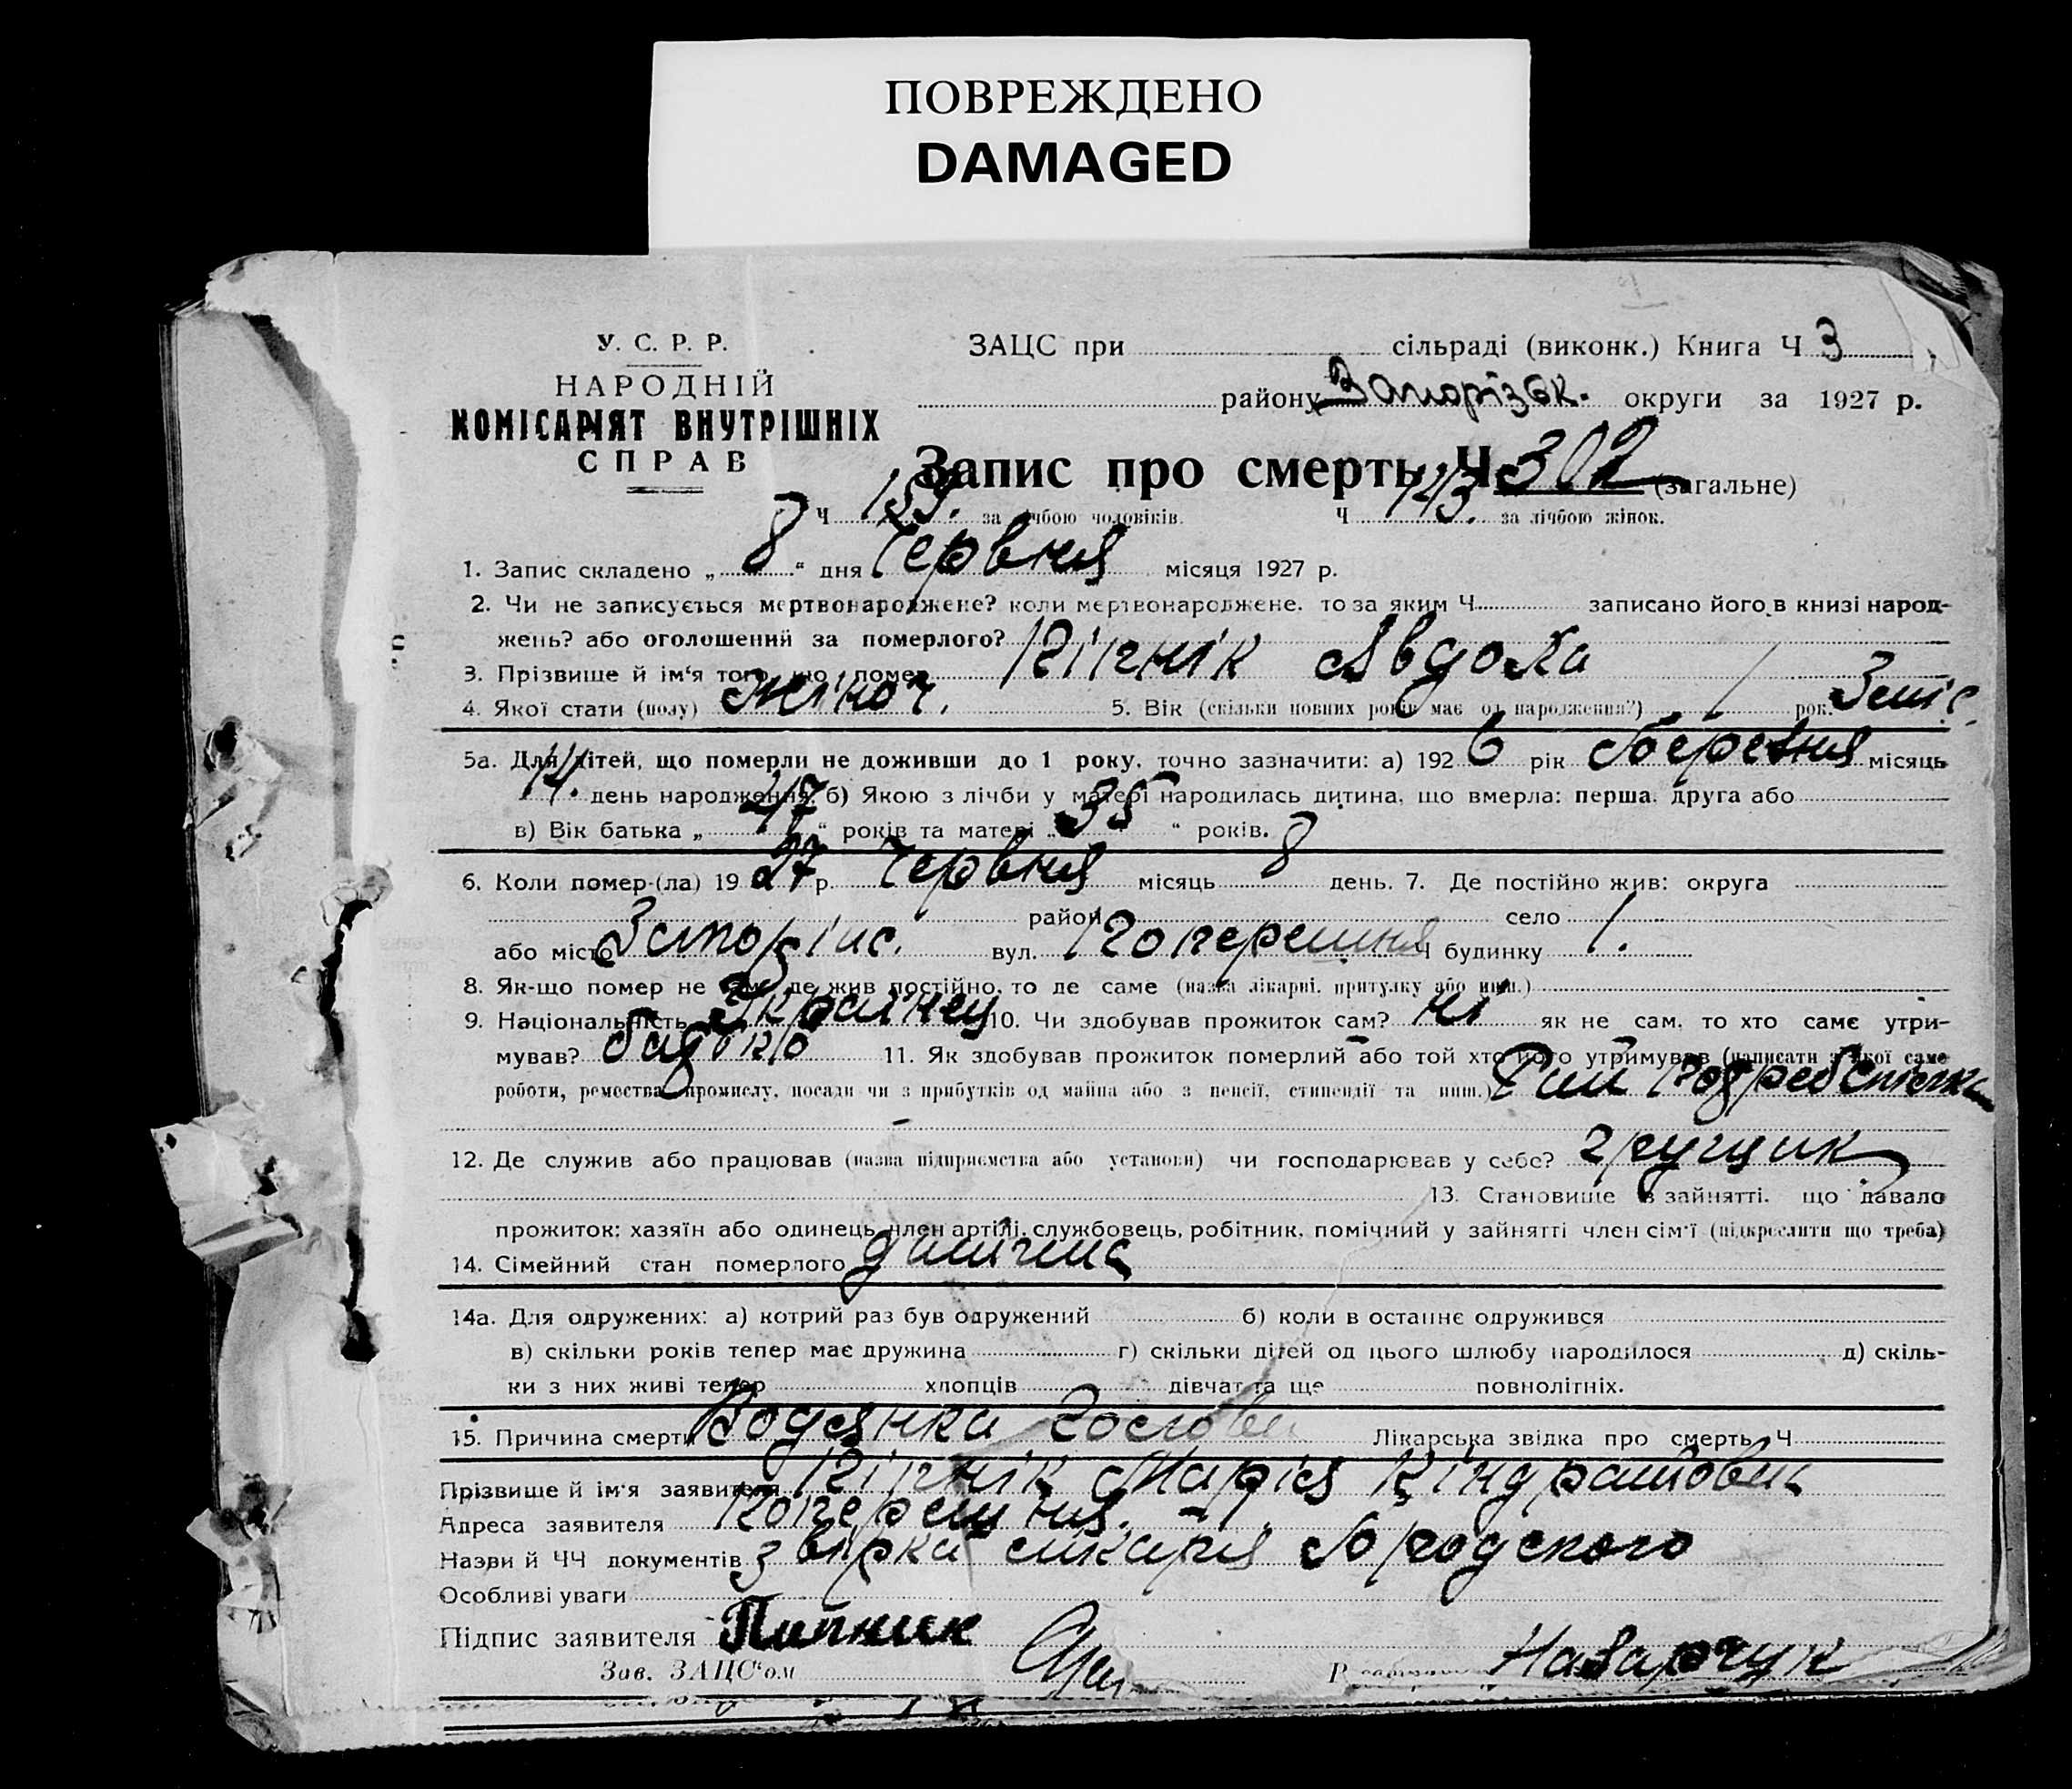 ПОВРЕЖДЕНО
DAMAGED
У. С. Р. Р.
НАРОДНІЙ
КОМІСАРІЯТ ВНУТРІШНІХ
СПРАВ
ЗАЦС при сільраді (виконк.) Книга Ч 3
району Запорізьк. округи за 1927 р.
Запис про смерть Ч 302 (загальне)
Ч 159. за лічбою чоловіків. Ч 143. за лічбою жінок.
1. Запис складено „ 8 “ дня Червня місяця 1927 р.
2. Чи не записується мертвонароджене? коли мертвонароджене, то за яким Ч. записано його в книзі народ-
жень? або оголошений за померлого?
3. Прізвище й ім'я того, що помер Авдока
4. Якої стати (полу) жіноч. 5. Вік (скільки повних років має од народження?) 1 рок. 3 міс.
5а. Для дітей, що померли не доживши до 1 року, точно зазначити: а) 1926 рік Березня місяць
14. день народження, б) Якою з лічби у матері народилась дитина, що вмерла: перша, друга або
в) Вік батька „ 47 “ років та матері „ 35 “ років.
6. Коли помер-(ла) 1927 р. Червня місяць 8 день. 7. Де постійно жив: округа
район село
або місто вул. Поперешня Ч будинку 1.
8. Як-що помер не там, де жив постійно, то де саме (назва лікарні, притулку або инш.)
9. Національність Українец 10. Чи здобував прожиток сам? ні як не сам, то хто саме утри-
мував? батько 11. Як здобував прожиток померлий або той хто його утримував (написати з якої саме
роботи, ремества, промислу, посади чи з прибутків од майна або з пенсії, стипендії та инш.)
12. Де служив або працював (назва підприємства або установи) чи господарював у себе? грущик
13. Становище в зайнятті, що давало
прожиток: хазяїн або одинець, член артілі, службовець, робітник, помічний у зайнятті член сім'ї (підкреслити що треба)
14. Сімейний стан померлого
14а. Для одружених: а) котрий раз був одружений б) коли в останнє одружився
в) скільки років тепер має дружина г) скільки дітей од цього шлюбу народилося д) скіль-
ки з них живі тепер хлопців дівчат та ще повнолітніх.
15. Причина смерти Водянка голови Лікарська звідка про смерть Ч
Прізвище й ім'я заявителя Марія Кіндратовна
Адреса заявителя Поперешня. - 1.
Назви й ЧЧ документів
Особливі уваги
Підпис заявителя Пипник
Зав. ЗАЦС'ом Назарчук